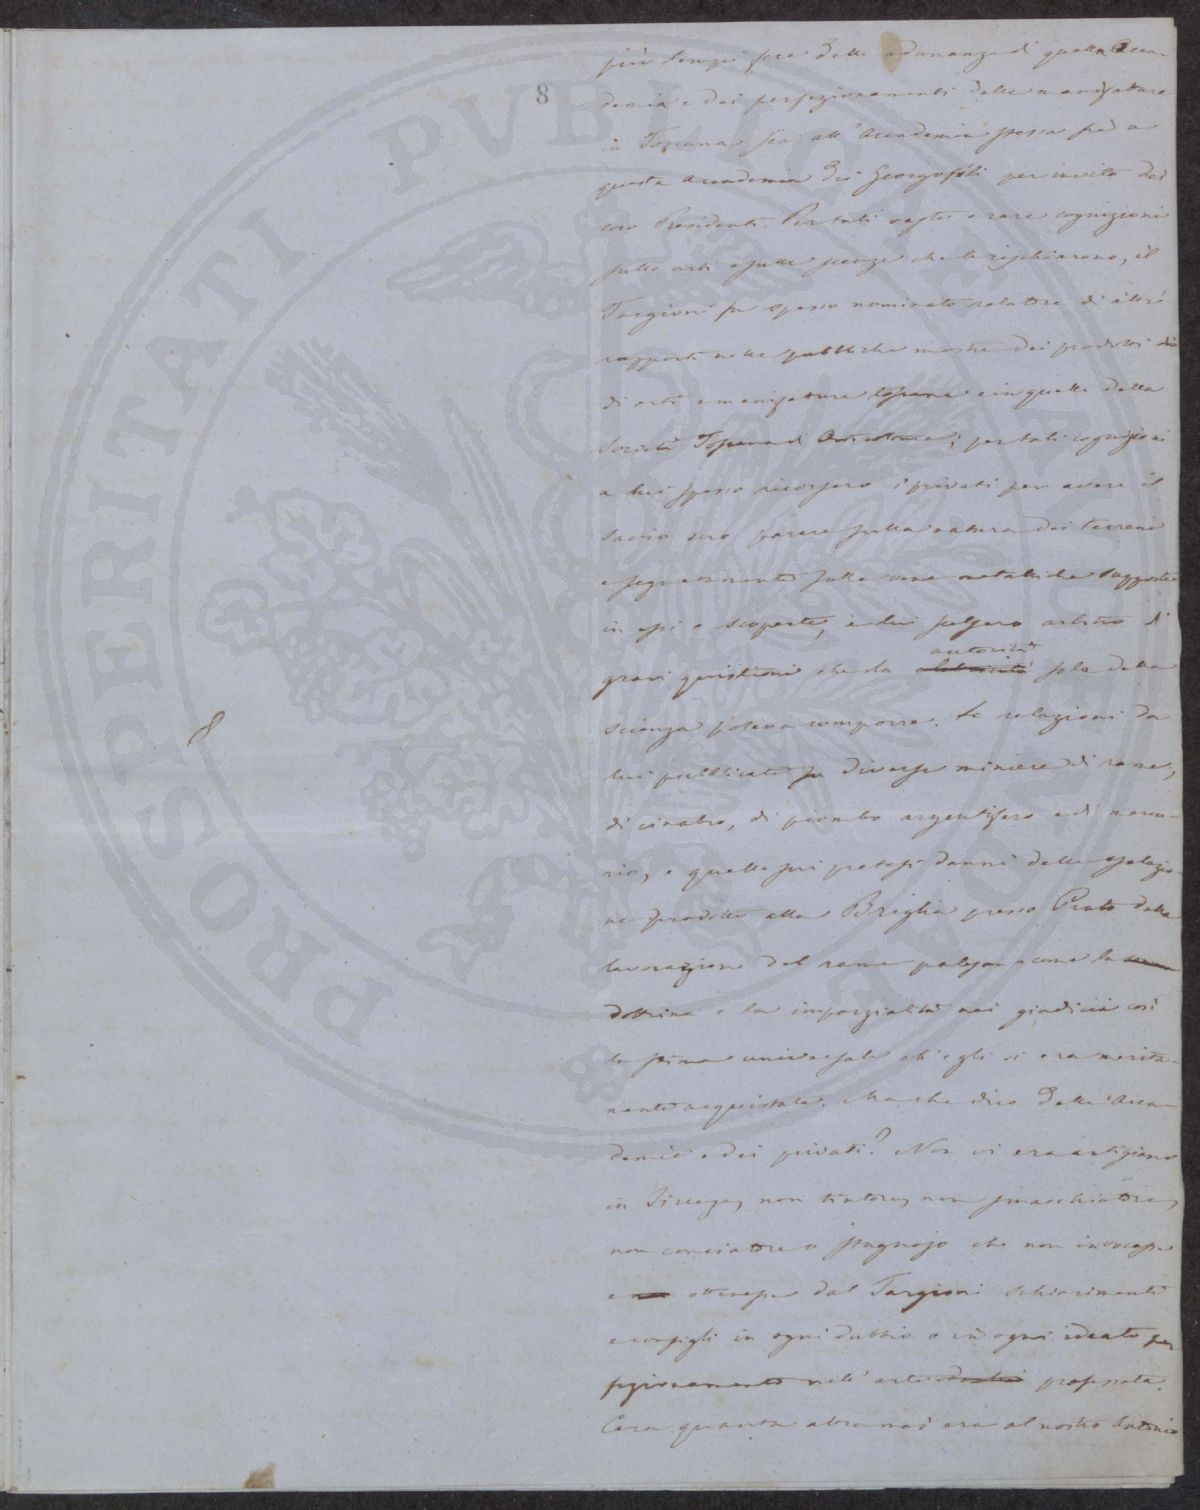 8
più tempi fece delle adunanze di quella Acca-
demia e dei perfezionamenti delle manifatture
in Toscana all' Accademia stessa e a
questa Accademia dei Georgofili per invito dei
loro Presidenti. Per tali vaste e rare cognizioni
sulle arti e sulle scienze che le rischiarono, il
Targioni fu spesso nominato relatore di altri
rapporti nelle pubbliche mostre dei prodotti di
di arti e manifatture toscane e in quelle della
Società Toscana di Orticoltura; per tali cognizioni
a lui spesso ricorsero i privati per avere il
savio suo parere sulla natura dei terreni
e segnatamente sulle vene metalliche supposte
in essi o scoperte, e lui scelsero arbitro di
autorità
gravi quistioni che la sola della
scienza poteva comporre. Le relazioni da
lui pubblicate su diverse miniere di rame,
di cinabro, di piombo argentifero e di mercu-
rio, e quelle sui pretesi danni delle esalazio-
ni prodotte alla Briglia presso Prato dalla
lavorazione del rame palesano come la
dottrina e la imparzialità nei giudicii così
la stima universale ch'egli si era merita-
mente acquistata. Ma che dico delle Acca-
demie e dei privati? Non vi era artigiano
in Firenze, non tintore, non smacchiatore,
non conciatore o stagnajo che non invocasse
e ottenesse dal Targioni schiarimenti
e consigli in ogni dubbio o in ogni ideato per
fezionamento nell' arte professata.
Cara quanta altra mai era al nostro Antonio
8
PROSPERITATI PVBLICAE AVGENDAE